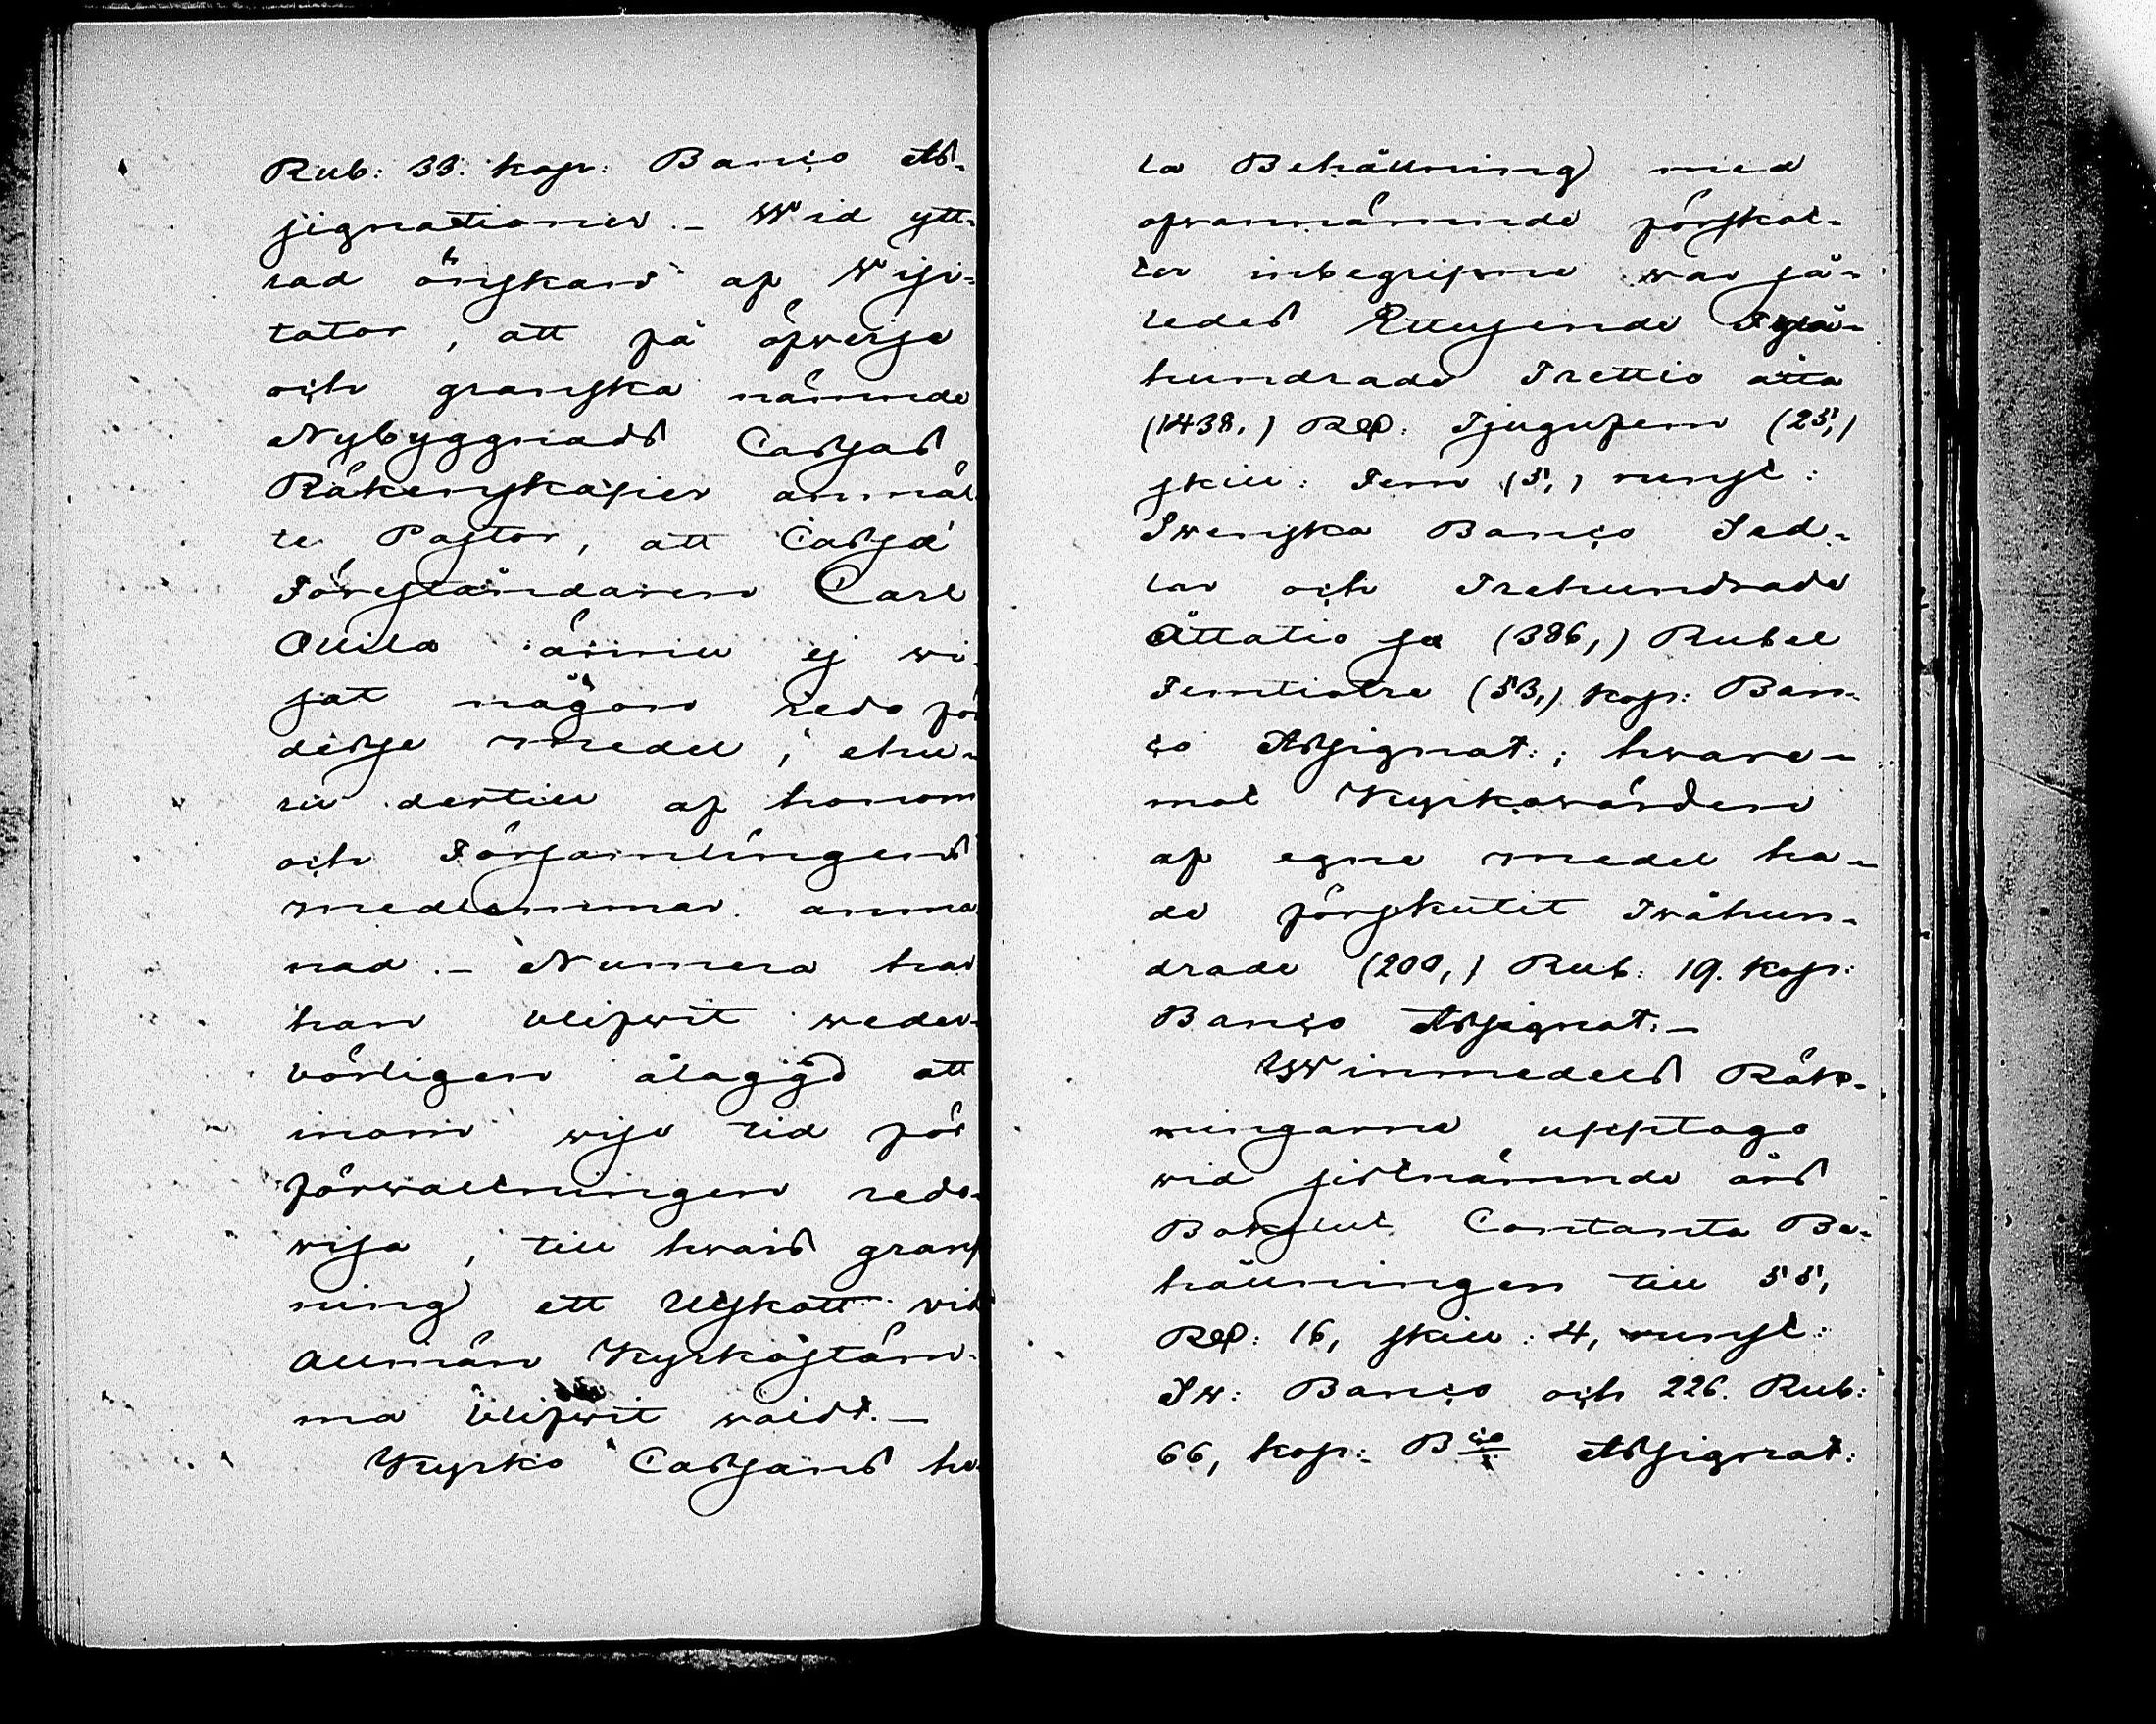 Rub: 33. kop: Banco As-
signationer. – Wid ytt-
rad önskan af Wisi-
tator, att få öfverse
och granska nämnde
Nybyggnads Cassas
Räkenskaper anmäl-
te Pastor, att Cassa
Föreståndaren Carl
Ollila ännu ej wi-
sat någon redo för
desse medel, ehu-
ru dertill af honom
och Församlingens
medlemmar anma-
nad. – Numera har
han blifwit weder-
börligen ålagd att
inom wiss tid för
förwaltningen redo-
wisa, till hwars gransk-
ning ett Utskott vid
Allmän Kyrkostäm-
ma blifwit waldt. –
Kyrko Cassans he-
la Behållning med
ofvannämnde förskot-
ter inbegripne war så-
ledes Ettusende Fyra-
hundrade Trettio åtta
(1438,) Rd: Tjugufem (25,)
skill: Fem (5,) runst:
Swenska Banco Sed-
lar och Trehundrade
Åttatio sex (386,) Rubel
Femtiotre (53,) kop: Ban-
co Assignat:; hware-
mot Kyrkowärden
af egne medel ha-
de förskutit Twåhun-
drade (200,) Rub: 19. kop:
Banco Assignat: –
Winmedels Räk-
ningarne upptogo
vid sistnämnde års
Bokslut Contanta Be-
hållningen till 55,
Rd: 16, skill: 4, runst:
Sw: Banco och 226. Rub:
66, kop: Bco Assignat: